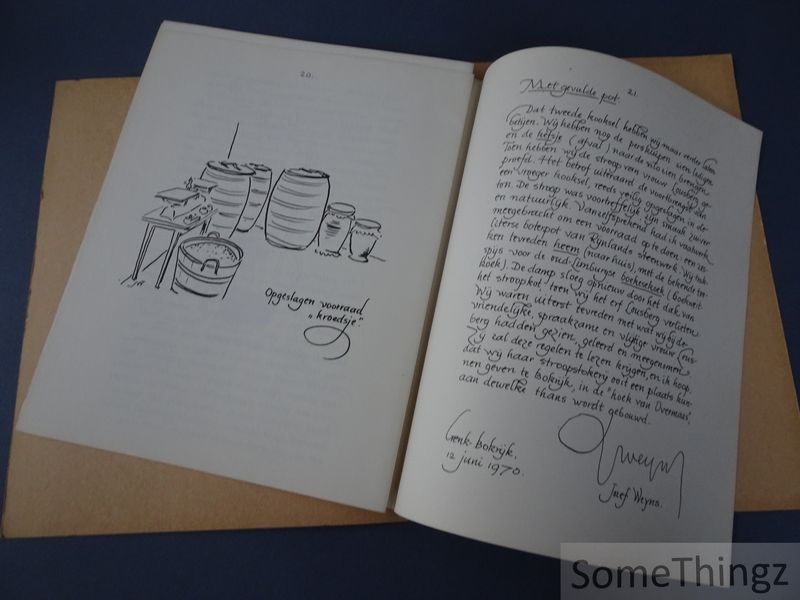 20.
Opgeslagen voorraad
"kroedsje"
21.
Met gevulde pot.
Dat tweede kooksel hebben wij maar eerder laten
betijen. Wij hebben nog de perskuipen zien ledigen
en de hetsje (afval) naar de silo zien brengen.
Toen hebben wij de stroop van vrouw Lousberg ge-
proefd. Het betrof uiteraard de voortbrengst van
een vroeger kooksel, reeds veilig opgeslagen in de
ton. De stroop was voortreffelijk van smaak, zuiver
en natuurlijk. Vanzelfsprekend had ik vaatwerk
meegebracht om een voorraad op te doen: een zes
literse boterpot van Rijnlands steenwerk. Wij trok-
ken tevreden heem (naar huis), met de bekende in-
spijs voor de oud-Limburgse boeksekoek (boekweit
koek). De damp sloeg opnieuw door het dak van
het stroopkot toen wij het erf Lousberg verlieten.
Wij waren uiterst tevreden met wat wij bij de
vriendelijke, spraakzame en vlijtige vrouw Lous-
berg hadden gezien, geleerd en meegenomen.
Zij zal deze regelen te lezen krijgen, en ik hoop
dat wij haar stroopstokerij ooit een plaats kun-
nen geven te Bokrijk, in de "hoek van Overmaas",
aan dewelke thans wordt gebouwd.
Genk-Bokrijk,
12 juni 1970.
Jweyns
Jozef Weyns.
SomeThingz